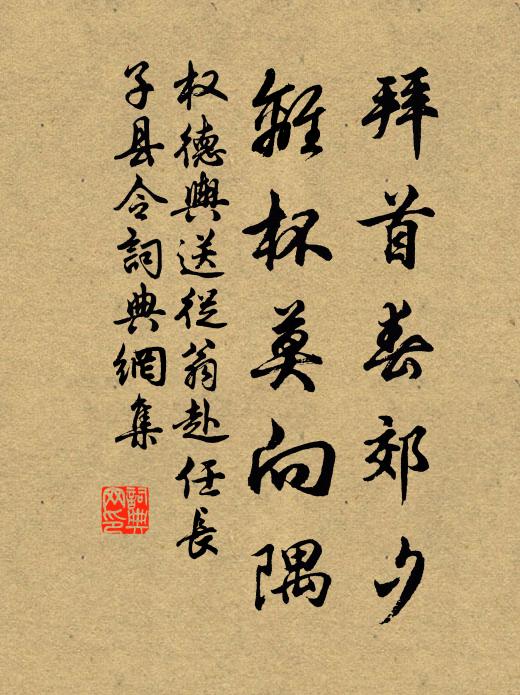 拜首春郊夕
離杯莫向隅
权德輿送從翁赴任長
子县令詞典網集
詞典
网印